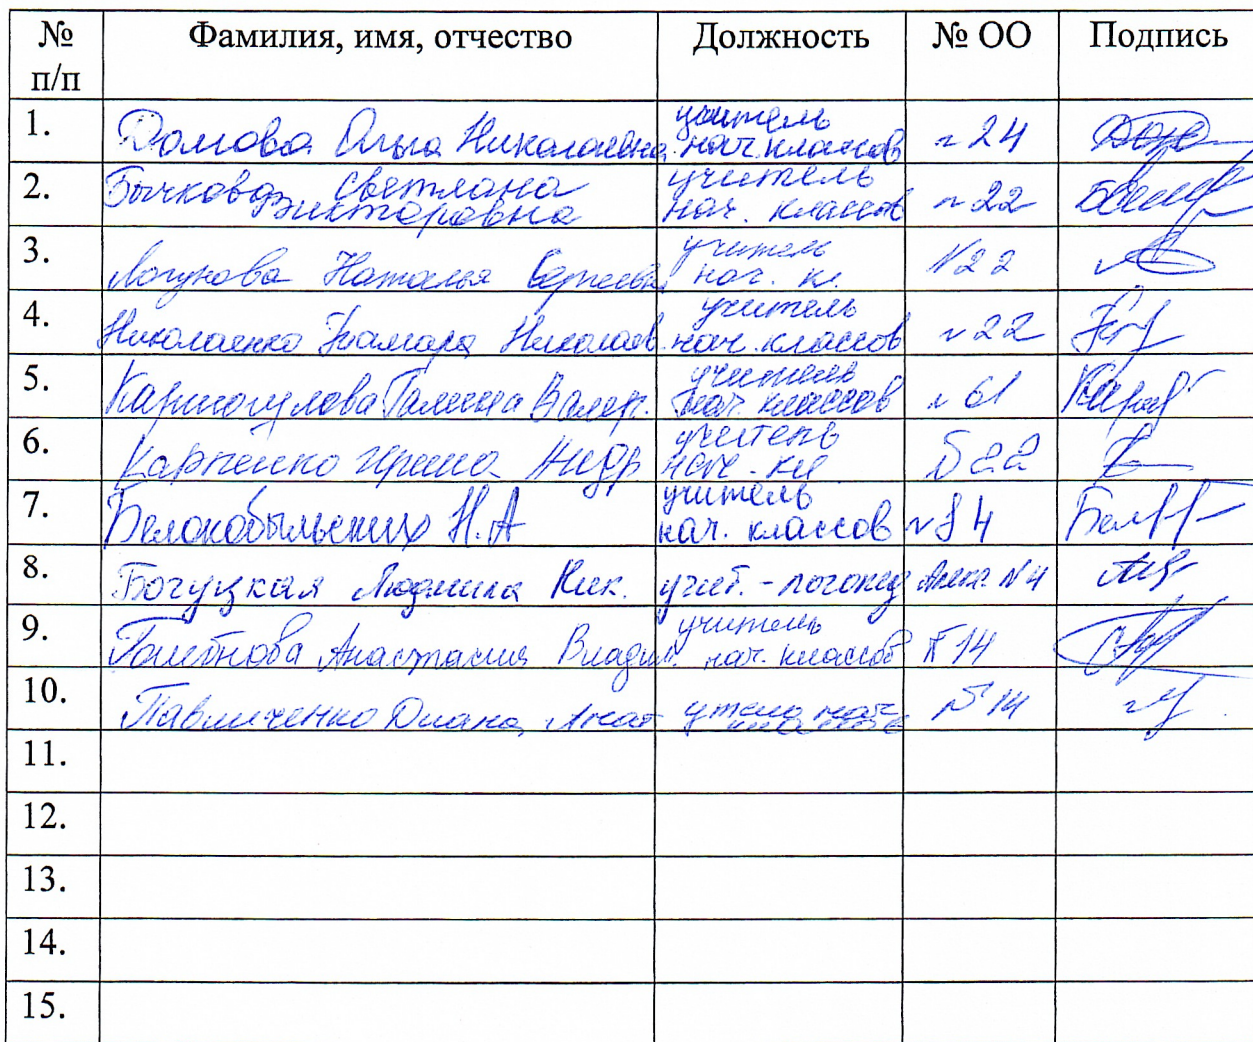 № п/п Фамилия, имя, отчество Должность № ОО Подпись
1. Домова Ольга Николаевна учитель нач. классов №24
2. Бычкова Светлана Викторовна учитель нач. классов №22
3. Логунова Наталья Сергеевн учитель нач. кл. №22
4. Николаенко Тамара Николаев. учитель нач. классов №22
5. Галина Валер. учитель нач. классов №61
6. Карпенко Ирина Андр. учитель нач. кл №22
7. Белокобыльских Н.А учитель нач. классов
8. Богуцкая Людмила Ник. учит. - логопед №4
9. Анастасия Владим. учитель нач. классов №14
10. Павличенко Диана Анат нач. №14
11.
12.
13.
14.
15.